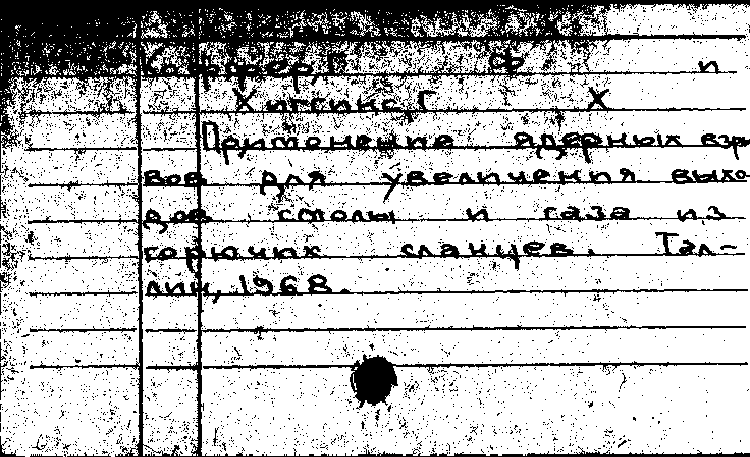 Кофер, Г Ф и
Хиггинс Г Х
Применение ядерных взры
вов для увеличения выхо-
дов смолы и газа из
горючих сланцев. Тал-
лин, 1968.